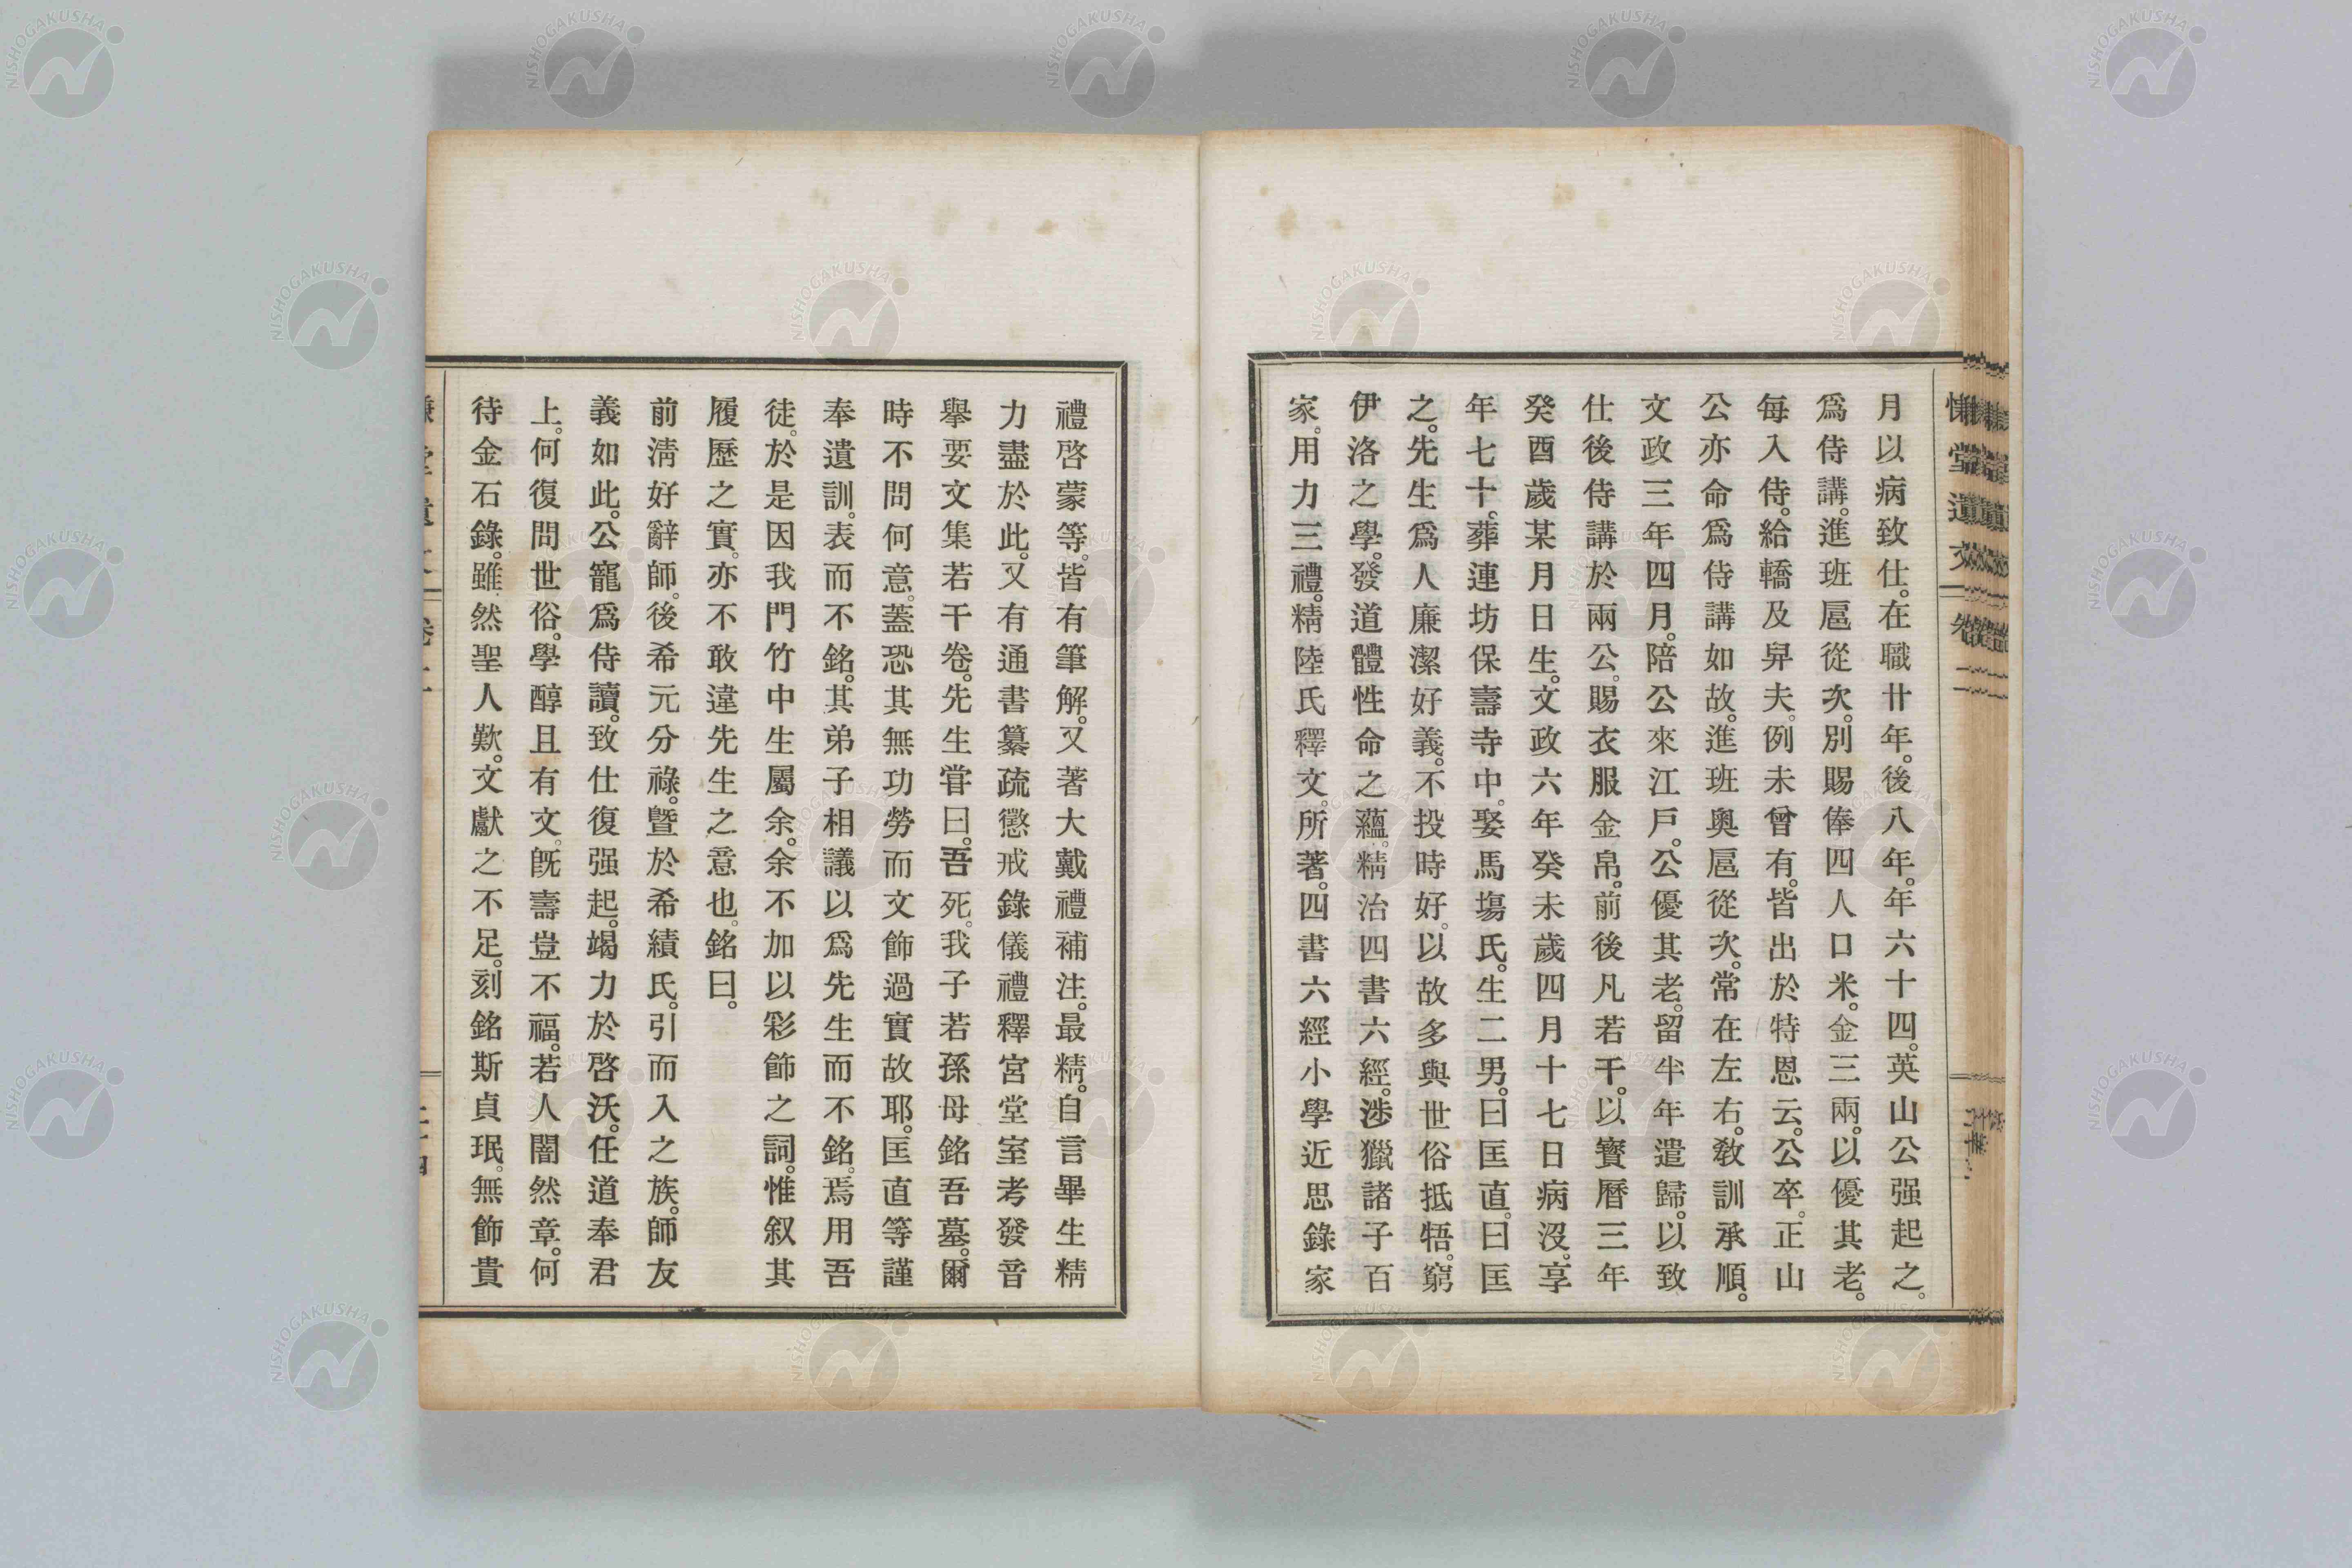 月以病致仕。在職廿年。後八年。年六十四。英山公强起之。
爲侍講。進班扈從次。別賜俸四人口米。金三兩。以優其老。
每入侍。給轎及舁夫。例未曾有。皆出於特恩云。公卒。正山
公亦命爲侍講如故。進班輿扈從次。常在左右。敎訓承順。
文政三年四月。陪公來江戶。公優其老。留半年遣歸。以致
仕後侍講於兩公。賜衣服金帛。前後凡若干。以寳曆三年
癸酉歲某月日生。文政六年癸未歲四月十七日病沒。享
年七十。葬連坊保壽寺中。娶馬塲氏。生二男。曰匡直。曰匡
之。先生爲人廉潔好義。不投時好。以故多與世俗抵牾。窮
伊洛之學。發道體性命之蘊。精治四書六經。涉獵諸子百
家。用力三禮。精陸氏釋文。所著。四書六經小學近思錄家
禮啓蒙等。皆有筆解。又著大戴禮補注。最精。自言畢生精
力盡於此。又有通書纂疏懲戒錄儀禮釋宮堂室考發音
擧要文集若干卷。先生甞曰。吾死。我子若孫母銘吾墓。爾
時不問何意。蓋恐其無功勞而文飾過實故耶。匡直等謹
奉遺訓。表而不銘。其弟子相議以爲先生而不銘。焉用吾
徒。於是因我門竹中生屬余。余不加以彩飾之詞。惟叙其
履歷之實。亦不敢違先生之意也。銘曰。
前淸好辭師。後希元分祿。曁於希績氏。引而入之族。師友
義如此。公寵爲侍讀。致仕復强起。竭力於啓沃。任道奉君
上。何復問世俗。學醇且有文。旣壽豈不福。若人闇然章。何
待金石錄。雖然聖人歎。文獻之不足。刻銘斯貞珉。無飾貴
慊堂遺文
卷二